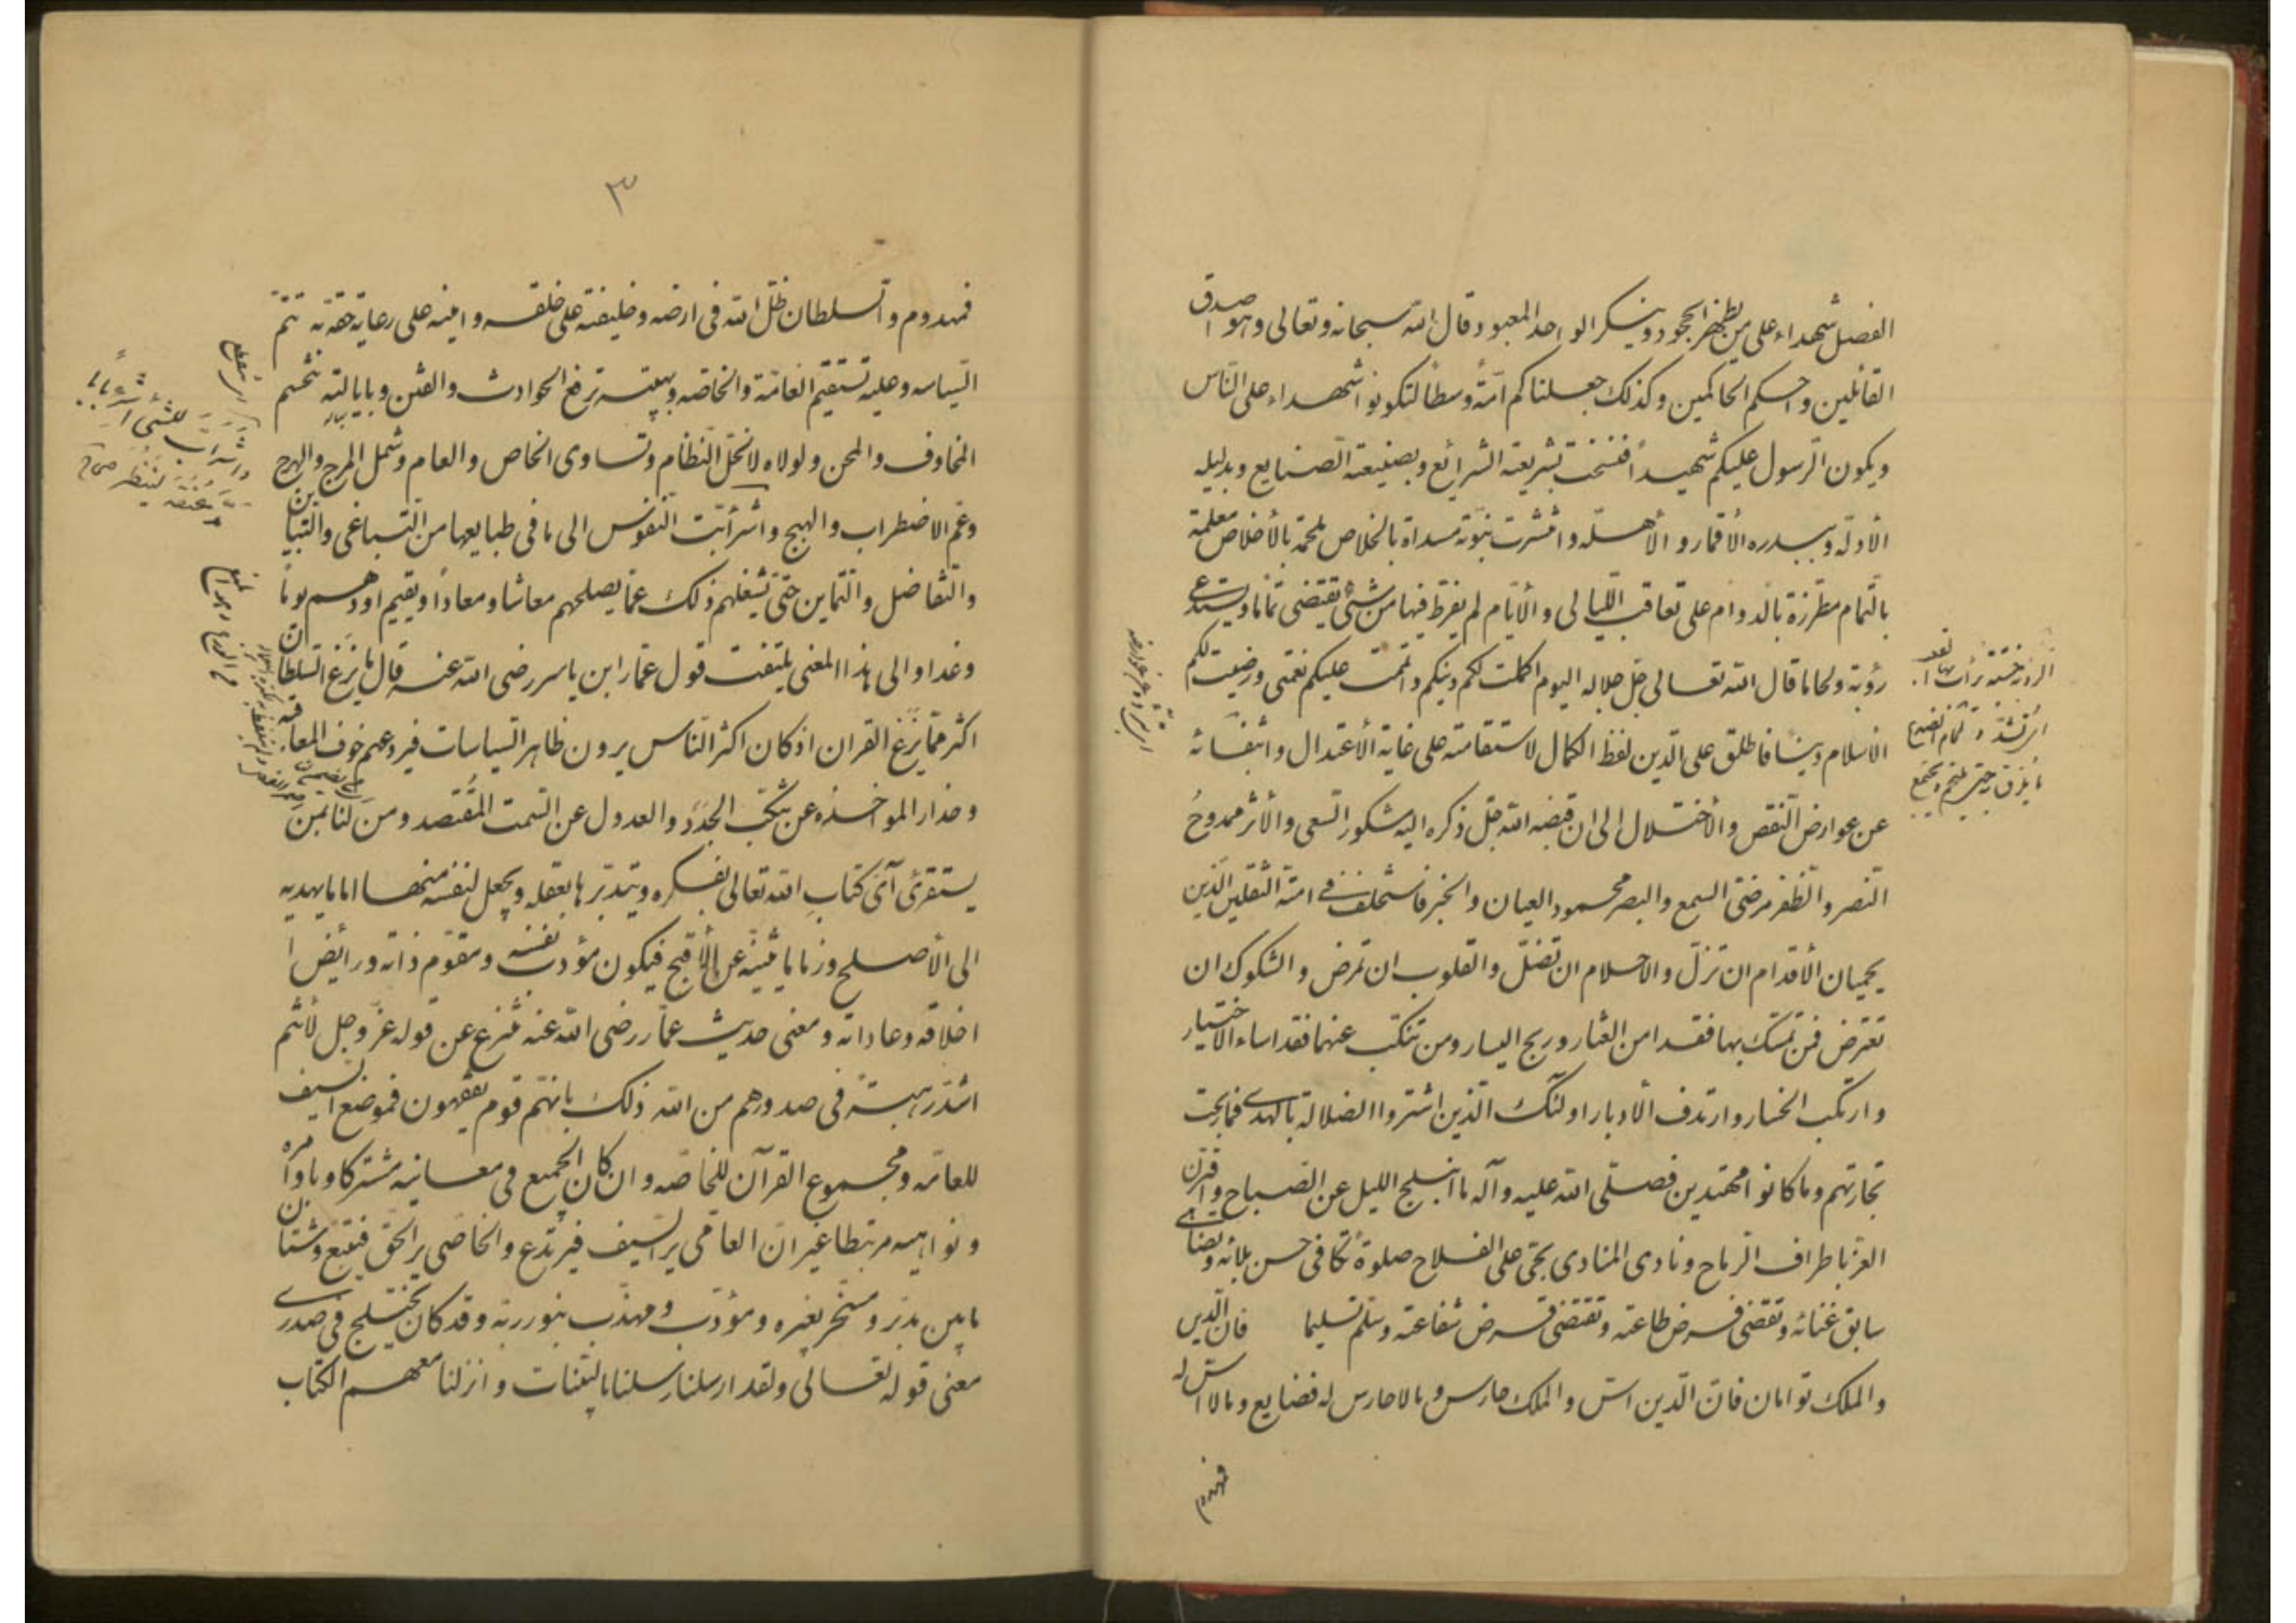 الفصل شهداء على من يظهر الجحود وينكر الواحد المعبود وقال الله سبحانه وتعالى وهو اصدق
القائلين واحكم الحاكمين وكذلك جعلناكم امّة وسطا لتكونوا شهداء على النّاس
ويكون الرّسول عليكم شهيداً فنسخت بشريعته الشرائع وبصنيعته الصّنايع وبدليله
الأدلّة وببدره الأقمار و الأهلّه وانتشرت بنبوّته مسداة بالخلاص ملحمة بالأخلاص معلمة
بالتّمام مطرزة بالدوام على تعاقب اللّيالى و الأيّام لم يفرّط فيها من شئ يقتضى تماما ويستدعى
رؤبة ولحاما قال الله تعالى جلّ جلاله اليوم اكملت لكم دينكم واتممت عليكم نعمتى ورضيت لكم
الاسلام دينًا فاطلق على الدّين لفظ الكمال لاستقامته على غاية الأعتدال وانتفائه
عن عوارض النّقص والأختلال الى ان قبضه الله جلّ ذكره اليه مشكور السّعى والأثر ممدوح
النّصر والظّفر مرضىّ السمع والبصر محمود العيان والخبر فاستخلف فى امته الثقلين الّذين
يحميان الأقدام ان تزلّ والاحلام ان تضلّ والقلوب ان تمرض والشكوك ان
تعترض فمن تمسّك بهما فقد امن العثار وربح اليسار ومن تنكّب عنهما فقد اساء الاختيار
وارتكب الخسار وارتدف الأدبار اولئك الّذين اشتروا الضلالة بالهدى فما ربحت
تجارتهم وما كانوا مهتدين فصلّى الله عليه وآله ما انسلخ الليل عن الصّباح واقترن
العز باطراف الرّماح ونادى المنادى بحىّ على الفلاح صلوةً تكافى حسن بلائه وتضاهى
سابق غنائه وتقضى فرض طاعته وتقتضى فرض شفاعته وسلّم تسليما فان الّدين
والملك توامان فانّ الّدين اسّ والملك حارس وما لا حارس له فضايع وما لا اسّ له
فمهدوم
٣
فمهدوم والسلطان ظلّ الله فى ارضه وخليفته على خلقه وامينه على رعاية حقّه به تتمّ
السّياسه وعليه تستقيم العامّة والخاصّه وبهيبته ترفع الحوادث والفتن وبايالته تنحسم
المخاوف والمحن ولولاه لانحلّ النّظام وتساوى الخاص والعام وشمل المرج والهرج
وعمّ الاضطراب والهيج واشرأبّت النّفوس الى ما فى طبايعها من التّباغى والتّباين
والتّفاضل والتّماين حتّى يشغلهم ذلك عمّا يصلحهم معاشا ومعاداً ويقيم اودهم يوماً
وغدا والى هذا المعنى يلتفت قول عمّار ابن ياسر رضى الله عنه قال ما يزع السلطان
اكثر ممّا يزع القران اذ كان اكثر النّاس يرون ظاهر السّياسات فيردعهم خوف المعاقبه
وحذار المواخذه عن تنكّب الجدد والعدول عن السّمت المقتصد ومن لنا بمن
يستقرئ آى كتاب الله تعالى بفكره ويتدبّرها بعقله ويجعل لنفسه منها اماما يهديه
الى الأصلح وزماما يثنيه عن الأقبح فيكون مؤدب نفسه ومقوّم ذاته ورائض
اخلاقه وعاداته ومعنى حديث عمّار رضى الله عنه منتزع عن قوله عزّ وجل لأنتم
اشدّ رهبةً فى صدورهم من الله ذلك بانّهم قوم يفقهون فموضع السيف
للعامّه ومجموع القرآن للخاصّه وان كان الجميع فى معانيه مشتركا وباوامره
ونواهيه مرتبطا غير انّ العامّى يرى السّيف فيرتدع والخاصّى يرى الحقّ فيتّبع وشتّان
ما بين مدبّر ومسخّر بغيره ومؤدّب ومهذّب بنور ربّه وقد كان يختلج فى صدرى
معنى قوله تعالى ولقد ارسلنا رسلنا بالبيّنات وانزلنا معهم الكتاب